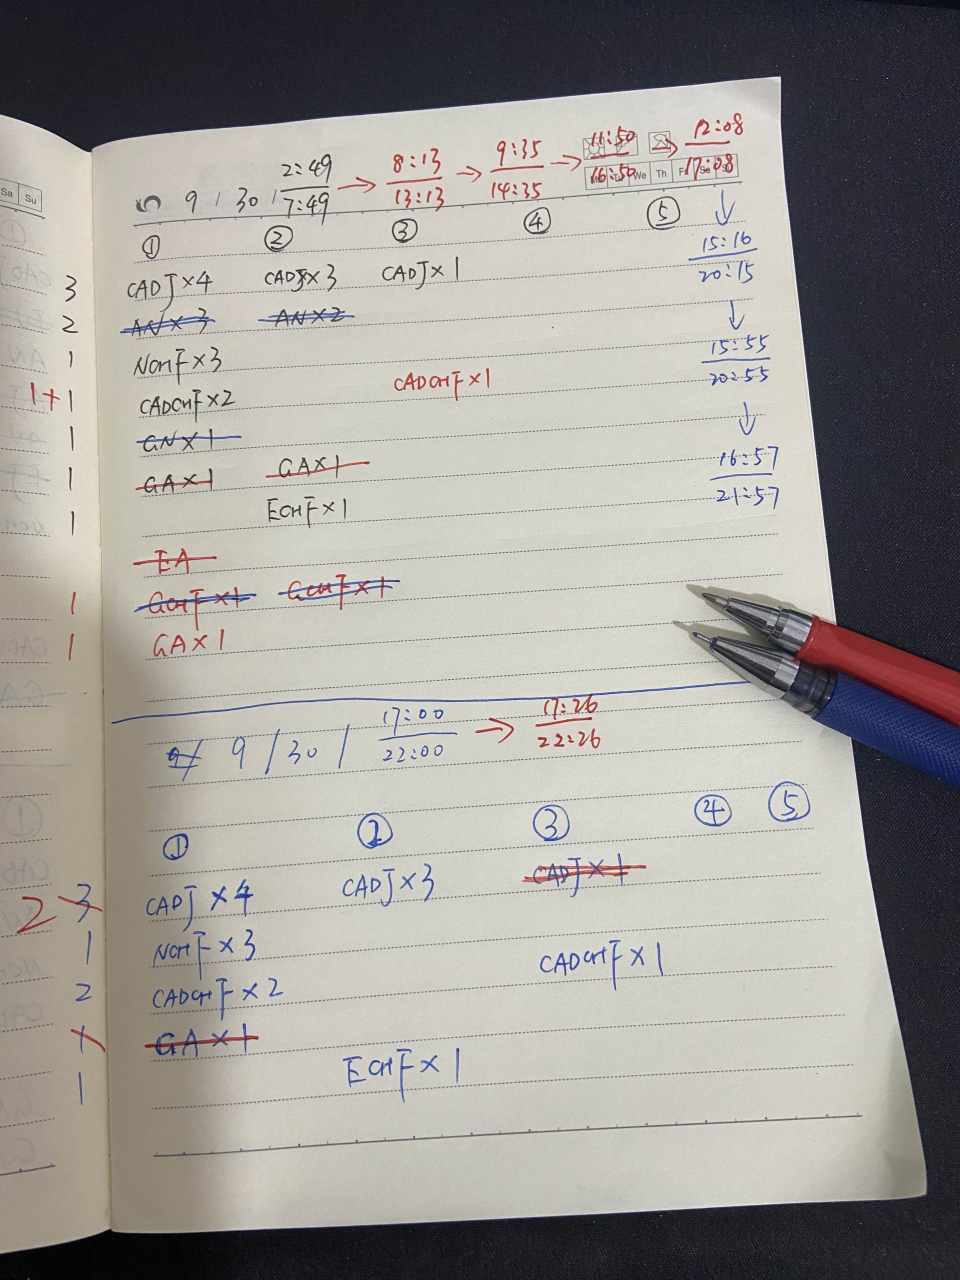 Sa Su
5 9 / 30 / 2:49 → 8:13 → 9:35 → 16:50 → 12:08
7:49 13:13 14:35 16:50 17:08
We Th
① ② ③ ④ ⑤
↓
15:16
20:15
3 CADJ×4 CADJ×3 CADJ×1
2 AN×3 AN×2
↓
15:55
20:55
1 NCHF×3
1+1 CADCHF×2 CADCHF×1
1 GN×1
↓
16:57
21:57
1 GA×1 GA×1
1 ECHF×1
EA
1 GCHF×1 GCHF×1
1 GA×1
9 / 30 / 17:00 → 17:26
22:00 22:26
① ② ③ ④ ⑤
2 3 CADJ×4 CADJ×3 CADJ×1
1 NCHF×3 CADCHF×1
2 CADCHF×2
1 GA×1
1 ECHF×1